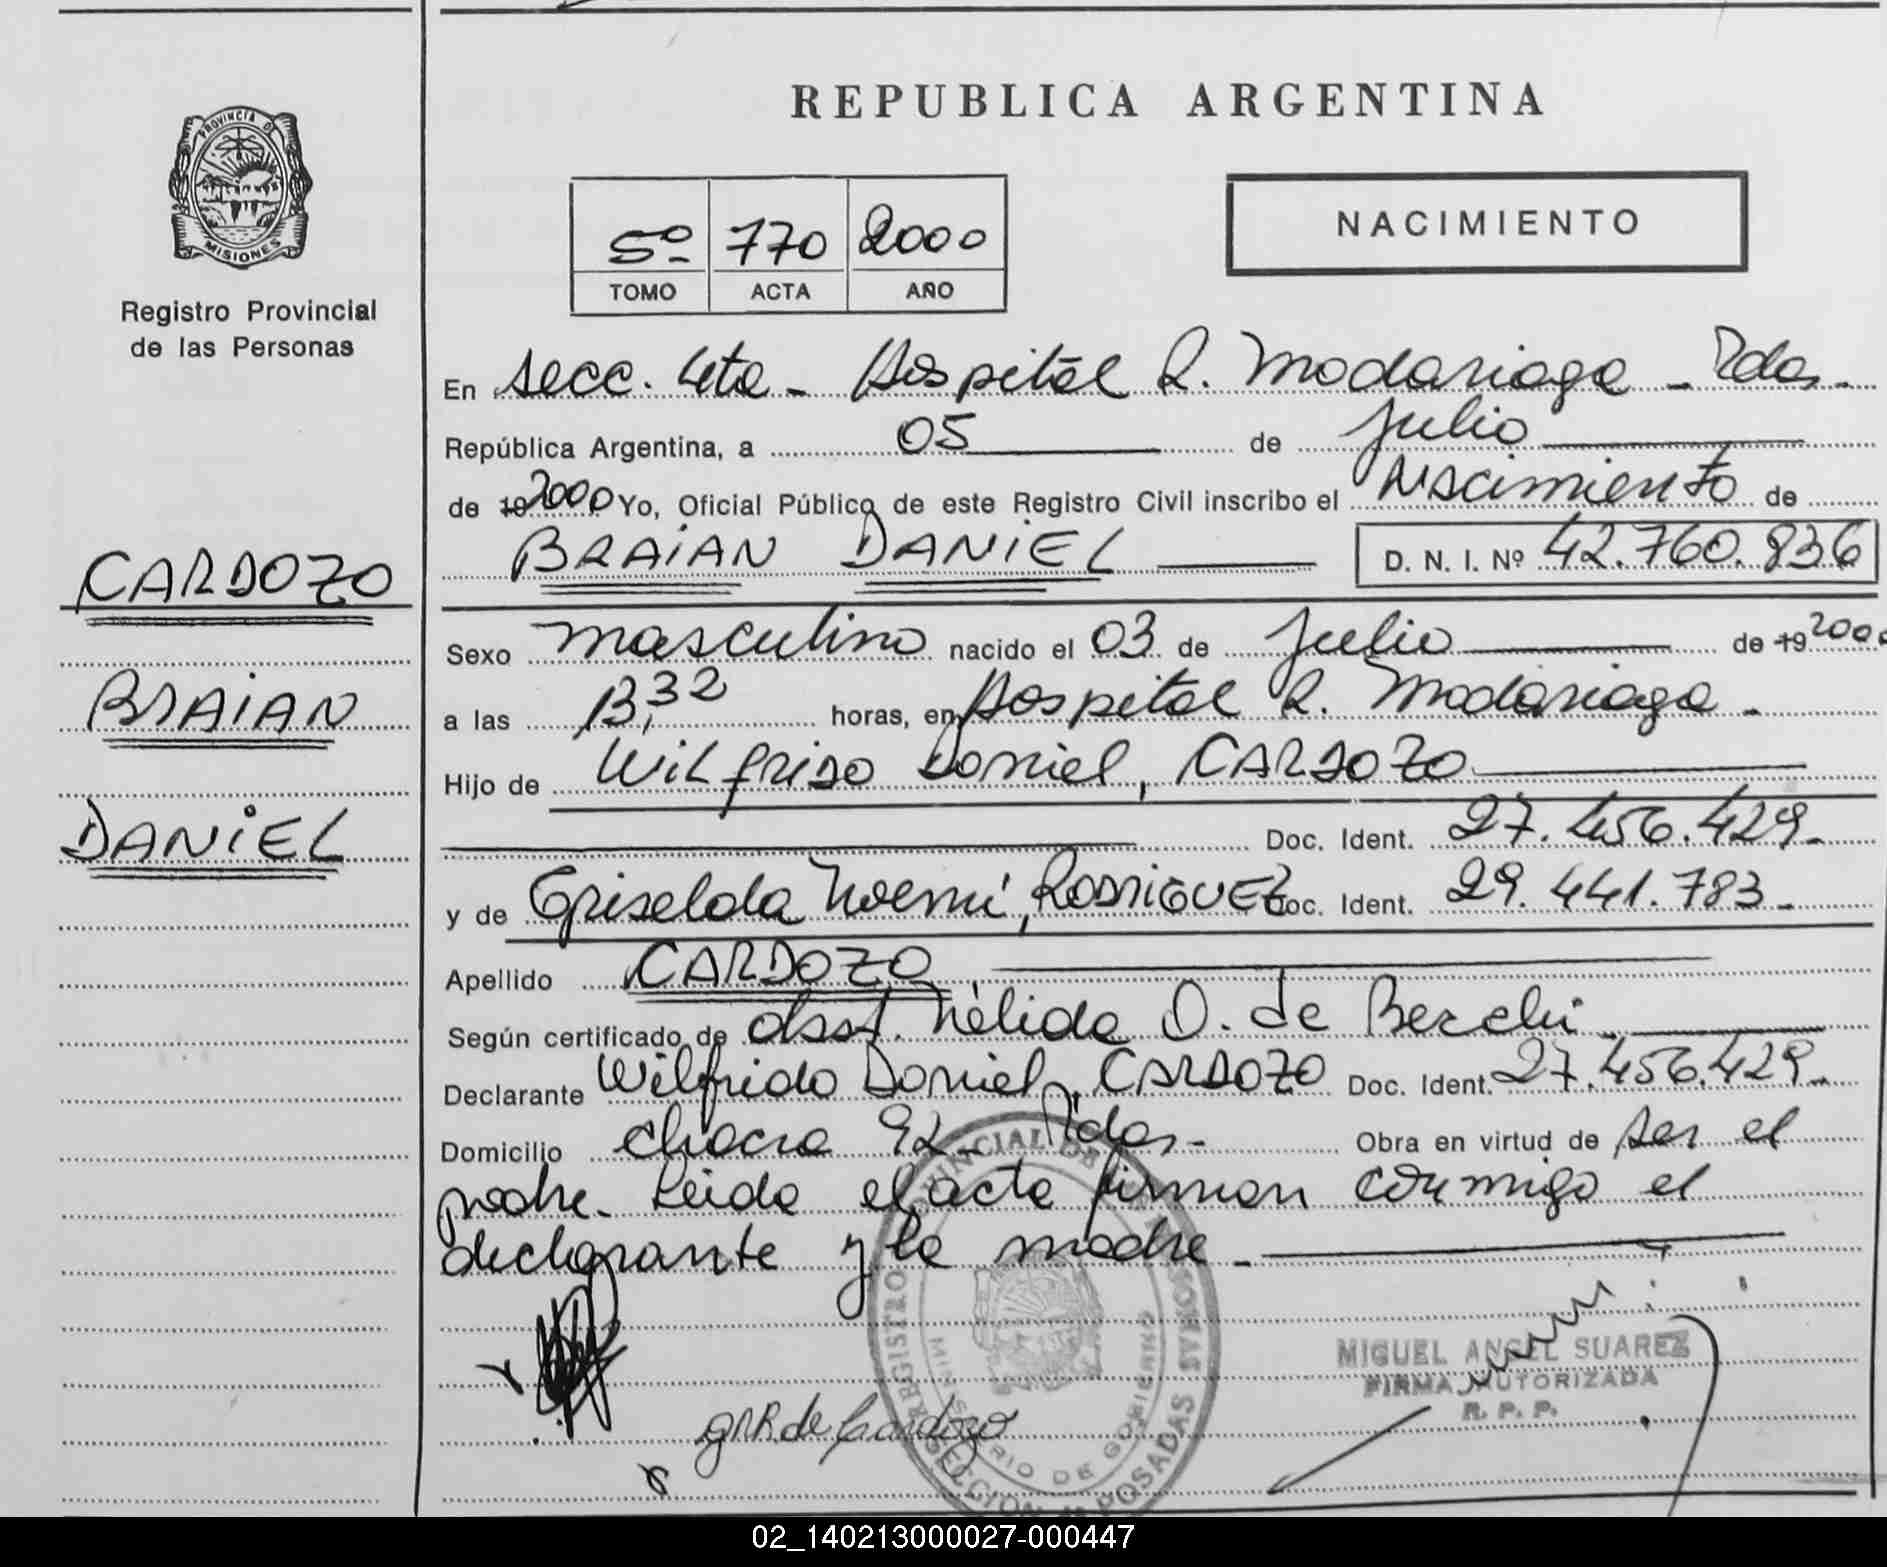 REPUBLICA ARGENTINA
PROVINCIA DE
MISIONES
Registro Provincial
de las Personas
5º 770 2000
TOMO ACTA AÑO
NACIMIENTO
En Secc. 4ta - Hospital R. Madariaga - Pdas.
República Argentina, a 05 de Julio
de 19 2000 Yo, Oficial Público de este Registro Civil inscribo el Nacimiento de
BRAIAN DANIEL D. N. I. Nº 42.760.836
CARDOZO
BRAIAN
DANIEL
Sexo masculino nacido el 03 de Julio de 19 2000
a las 13,32 horas, en Hospital R. Madariaga.
Hijo de Wilfrido Daniel, CARDOZO
Doc. Ident. 27.456.429.-
y de Griselda Noemí, RODRIGUEZ Doc. Ident. 29.441.783.-
Apellido CARDOZO
Según certificado de obst. Nélida O. de
Declarante Wilfrido Daniel, CARDOZO Doc. Ident. 27.456.429.-
Domicilio chacra 92 - Pdas.- Obra en virtud de ser el
padre. Leida el acta firman conmigo el
declarante y la madre.-
REGISTRO PROVINCIAL DE LAS PERSONAS
MINISTERIO DE GOBIERNO
SECCION POSADAS
MIGUEL ANGEL SUAREZ
FIRMA AUTORIZADA
R. P. P.
de Cardozo
02_140213000027-000447